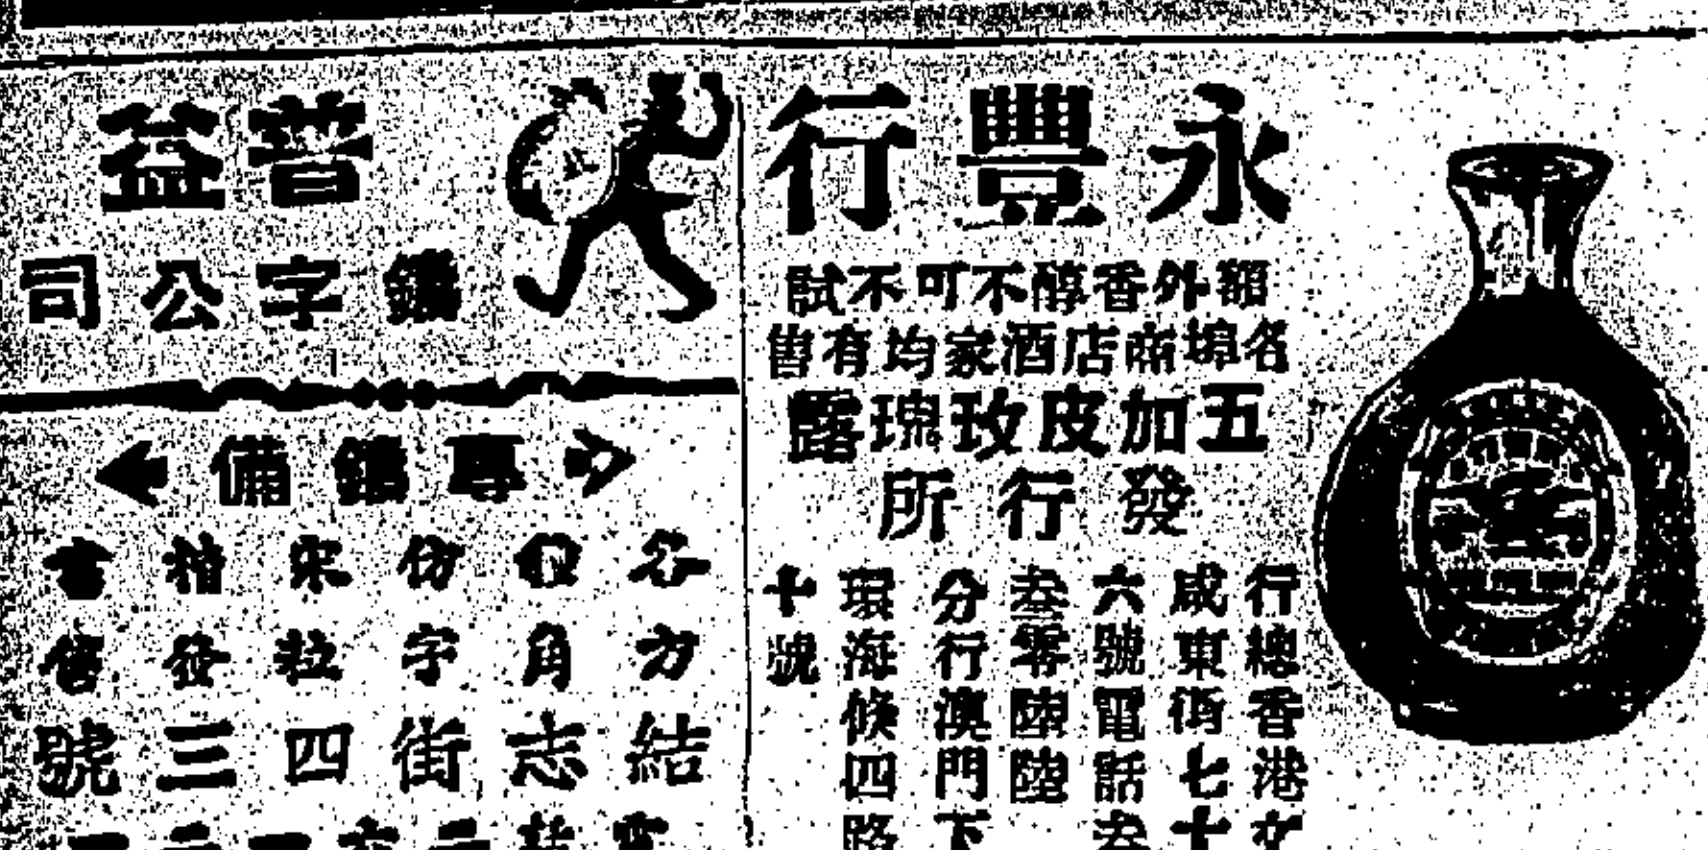 永豐行
外香醇不可不試
各埠商店酒家均有售
五加皮玫瑰露
發行所
行總香港文
咸東街七十
六號電話叁
叁零陸陸
分行澳門下
環海傍四路
十號
普益
鑄字公司
專鑄備
各仿宋楷書
方角字粒發售
結志街四三號